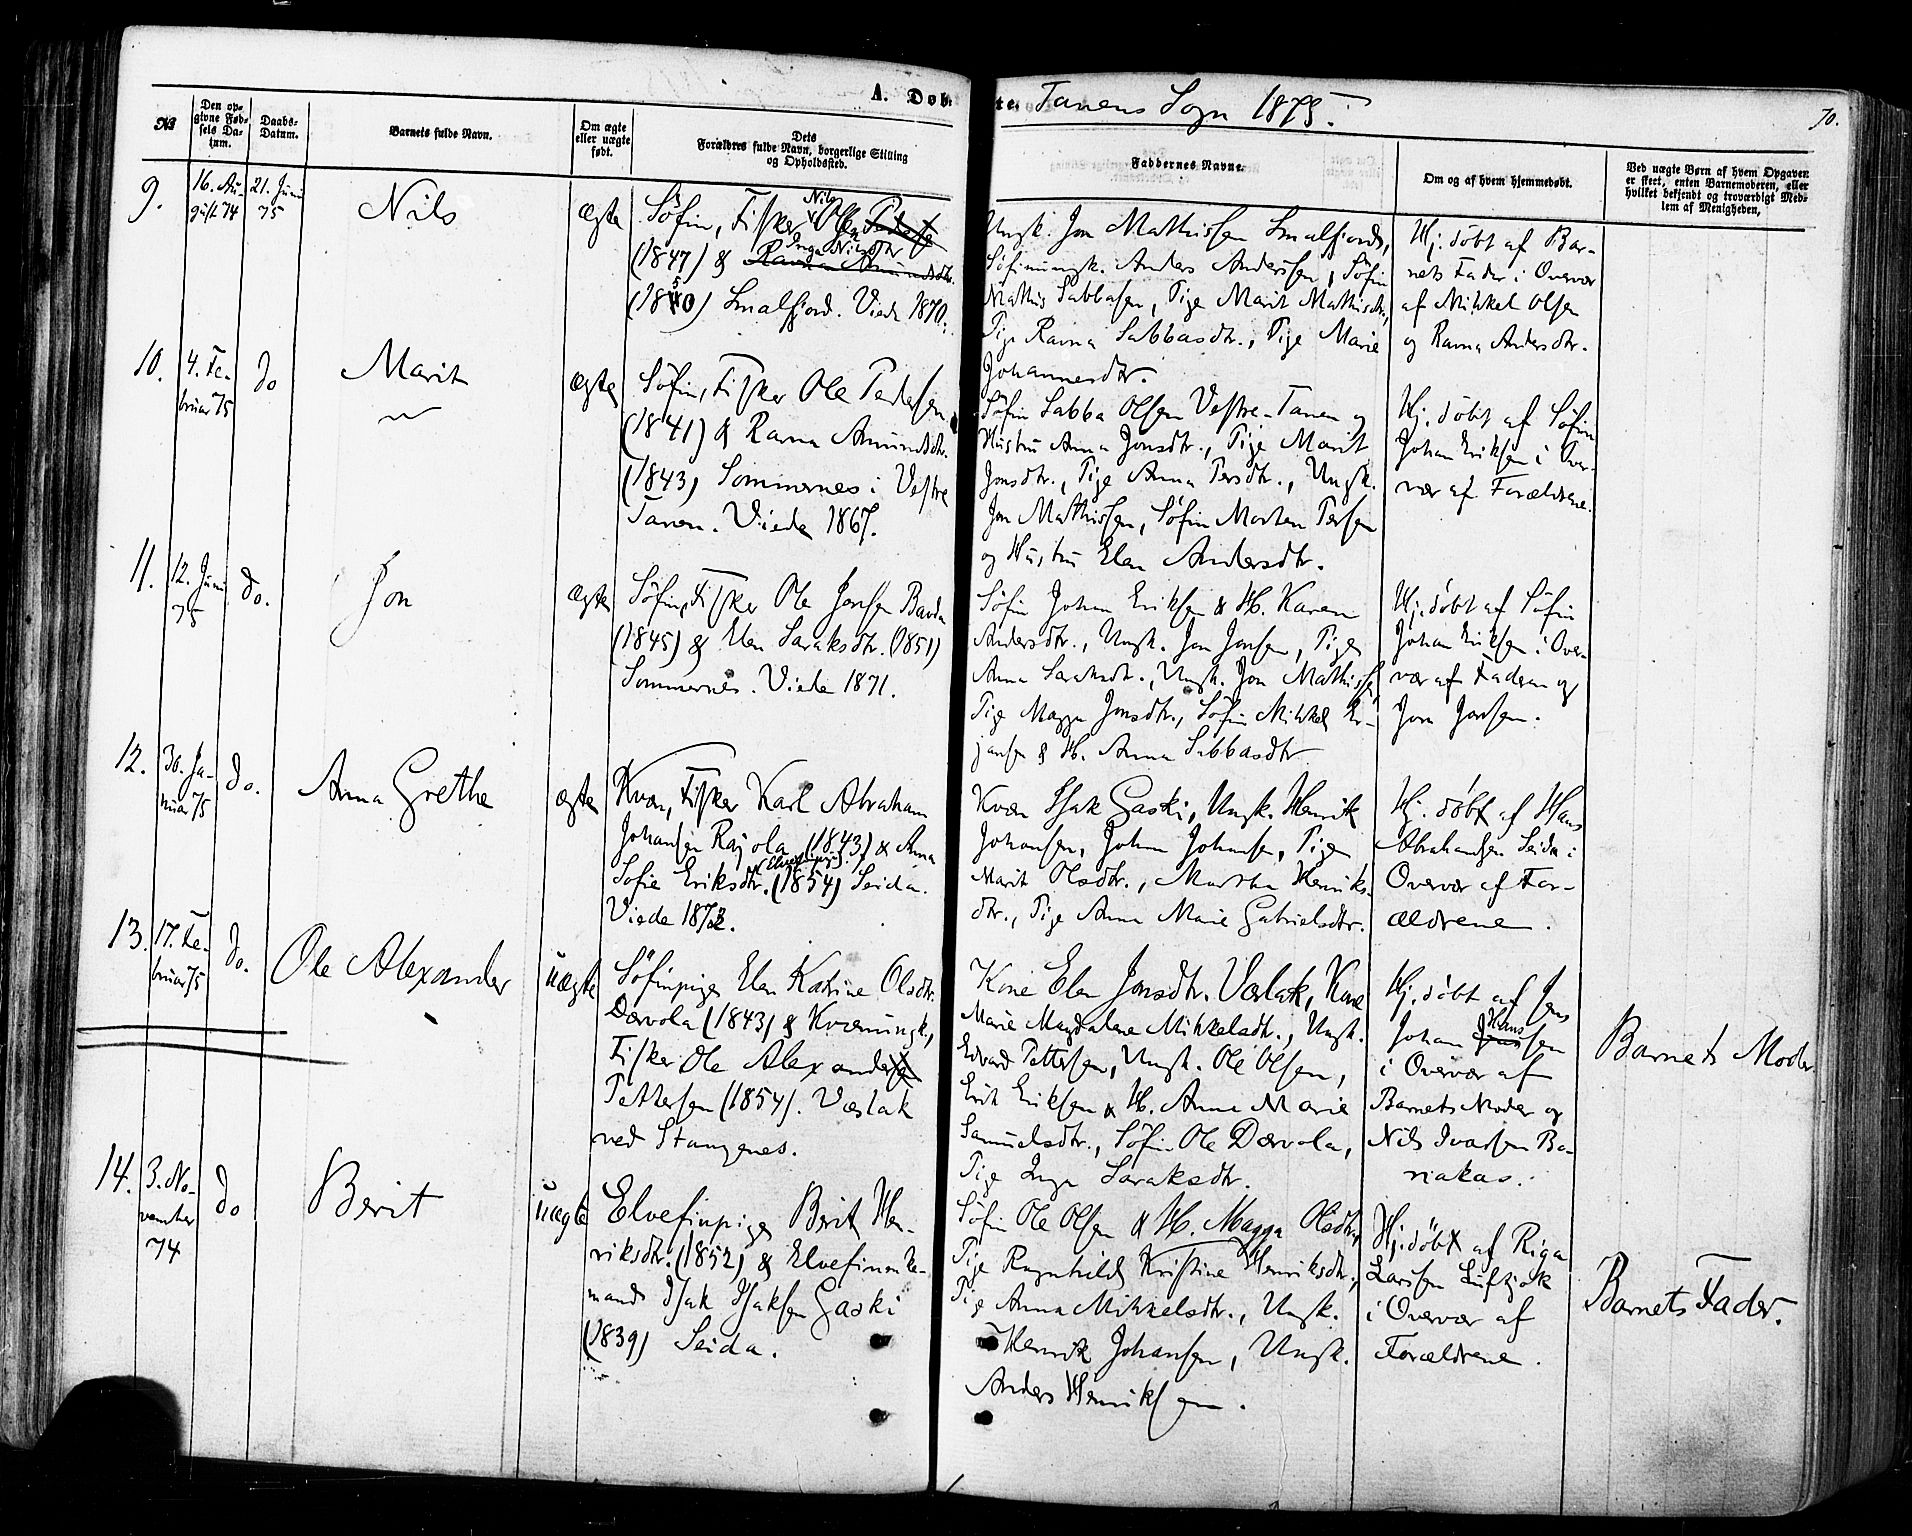 A. Døb-
te. Tanens Sogn 1875.
70.
№
Den op-
givne Fød-
sels Da-
tum.
Daabs-
Datum.
Barnets fulde Navn.
Om ægte
eller uægte
født.
Dets
Forældres fulde Navn, borgerlige Stilling
og Opholdssted.
Faddernes Navne.
Om og af hvem hjemmedøbt.
Ved uægte Børn af hvem Opgaven
er skeet, enten Barnemoderen, eller
hvilket bekjendt og troværdigt Med-
lem af Menigheden,
9.
16. Au-
gust 74
21. Juni
75
Nils
ægte
Nils
Søfin, Fisker Olsen Peders
Inga Nilsdtr
(1847) & Ravna Amundsdtr.
(1850) Smalfjord. Viede 1870.
Ungk. Jon Mathissen Smalfjord,
Søfinungk. Anders Anderssen, Søfin
Mathis Sabbasen, Pige Marit Mathisdtr.,
Pige Ravna Sabbasdtr., Pige Marie
Johannesdtr.
Hj. døbt af Bar-
nets Fader i Overvær
af Mihkel Olsen
og Ravna Andersdtr.
10.
4. Fe-
bruar 75
do
Marit
ægte
Søfin, Fisker Ole Pedersen
(1841) & Ravna Amundsdtr.
(1843) Sommernes i Vestre
Tanen. Viede 1867.
Søfin Sabba Olsen Vestre-Tanen og
Hustru Anna Jonsdtr., Pige Marit
Jonsdtr., Pige Anna Persdtr., Ungk.
Jon Mathissen, Søfin Morten Persen
og Hustru Elen Andersdtr.
Hj. døbt af Søfin
Johan Eriksen i Over-
vær af Forældrene.
11.
12. Juni
75
do.
Jon
ægte
Søfin, Fisker Ole Jonsen
(1845) & Elen Saraksdtr. (1851)
Sommernes. Viede 1871.
Søfin Johan Eriksen & H. Karen
Andersdtr., Ungk. Jon Jonsen, Pige
Anna Saraksdtr., Ungk. Jon Mathissen
Pige Magga Jonsdtr., Søfin Mihkel Er-
jansen & H. Anna Sabbasdtr
Hj. døbt af Søfin
Johan Eriksen i Over-
vær af Faderen og
Jon Jonsen.
12.
30. Ja-
nuar 75
do.
Anna Grethe
ægte
Kvæn, Fisker Karl Abraham
Johansen Rajola (1843) & Anna
Sofie Eriksdtr. (1854) Seida.
Viede 1873.
Kvæn Isak Gaski, Ungk. Henrik
Johansen, Johan Johansen, Pige
Marit Olsdtr., Martha Henriks-
dtr., Pige Anna Marie Gabrielsdtr.
Hj. døbt af Hans
Abrahamsen Seida i
Overvær af For-
ældrene.
13.
17. Fe-
bruar 75
do.
Ole Alexander
uægte
Søfinpige Elen Katrine Olsdtr.
Dærvola (1843) & Kvænungk.,
Fisker Ole Alexandersen
Pettersen (1854). Væslak
ved Stangenes.
Kone Elen Jonsdtr. Væslak, Kone
Marie Magdalene Mihkelsdtr., Ungk.
Edvard Pettersen, Ungk. Ole Olsen,
Erik Eriksen & H. Anna Marie
Samuelsdtr., Søfin Ole Dærvola,
Pige Inga Saraksdtr.
Hj. døbt af Jens
Hans
Johan Jenssen
i Overvær af
Barnets Moder og
Nils Ivarsen Ba-
riakas.
Barnets Moder
14.
3. No-
vember
74
do
Berit
uægte
Elvefinpige Berit Hen-
riksdtr. (1852) & Elvefin enke-
mand Isak Isaksen Gaski
(1839) Seida.
Søfin Ole Olsen & H. Magga Olsdtr.,
Pige Ragnhild Kristine Henriksdtr.,
Pige Anna Mihkelsdtr., Ungk.
Henrik Johansen, Ungk.
Anders Henriksen.
Hj. døbt af Riga
Larsen Luftjok
i Overvær af
Forældrene.
Barnets Fader.